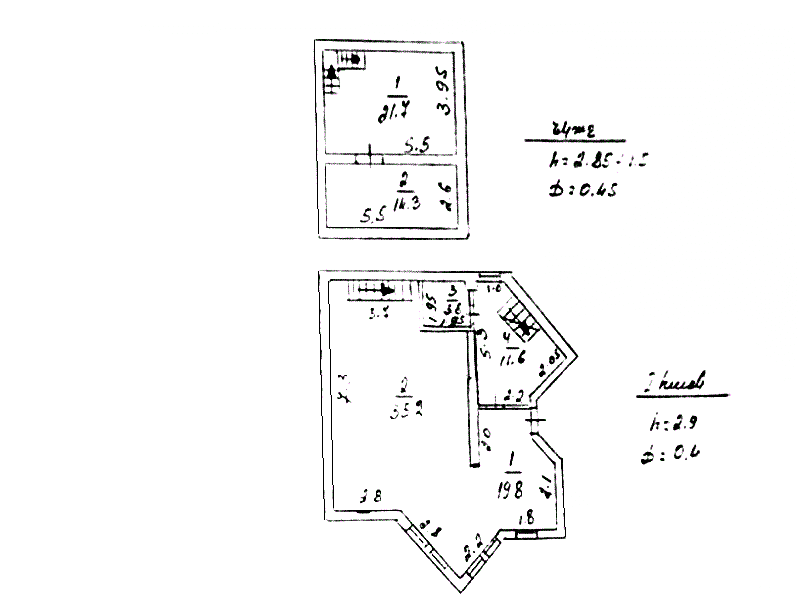 1
21.7
3.95
5.5
2
14.3
2.6
5.5
h = 2.85
Ֆ = 0.45
1.0
3.7
1.95
3
3.6
1.85
5.9
4
11.6
2.05
2.2
2
35.2
2.0
1
19.8
2.1
1.8
2.8
2.8
2.2
h = 2.9